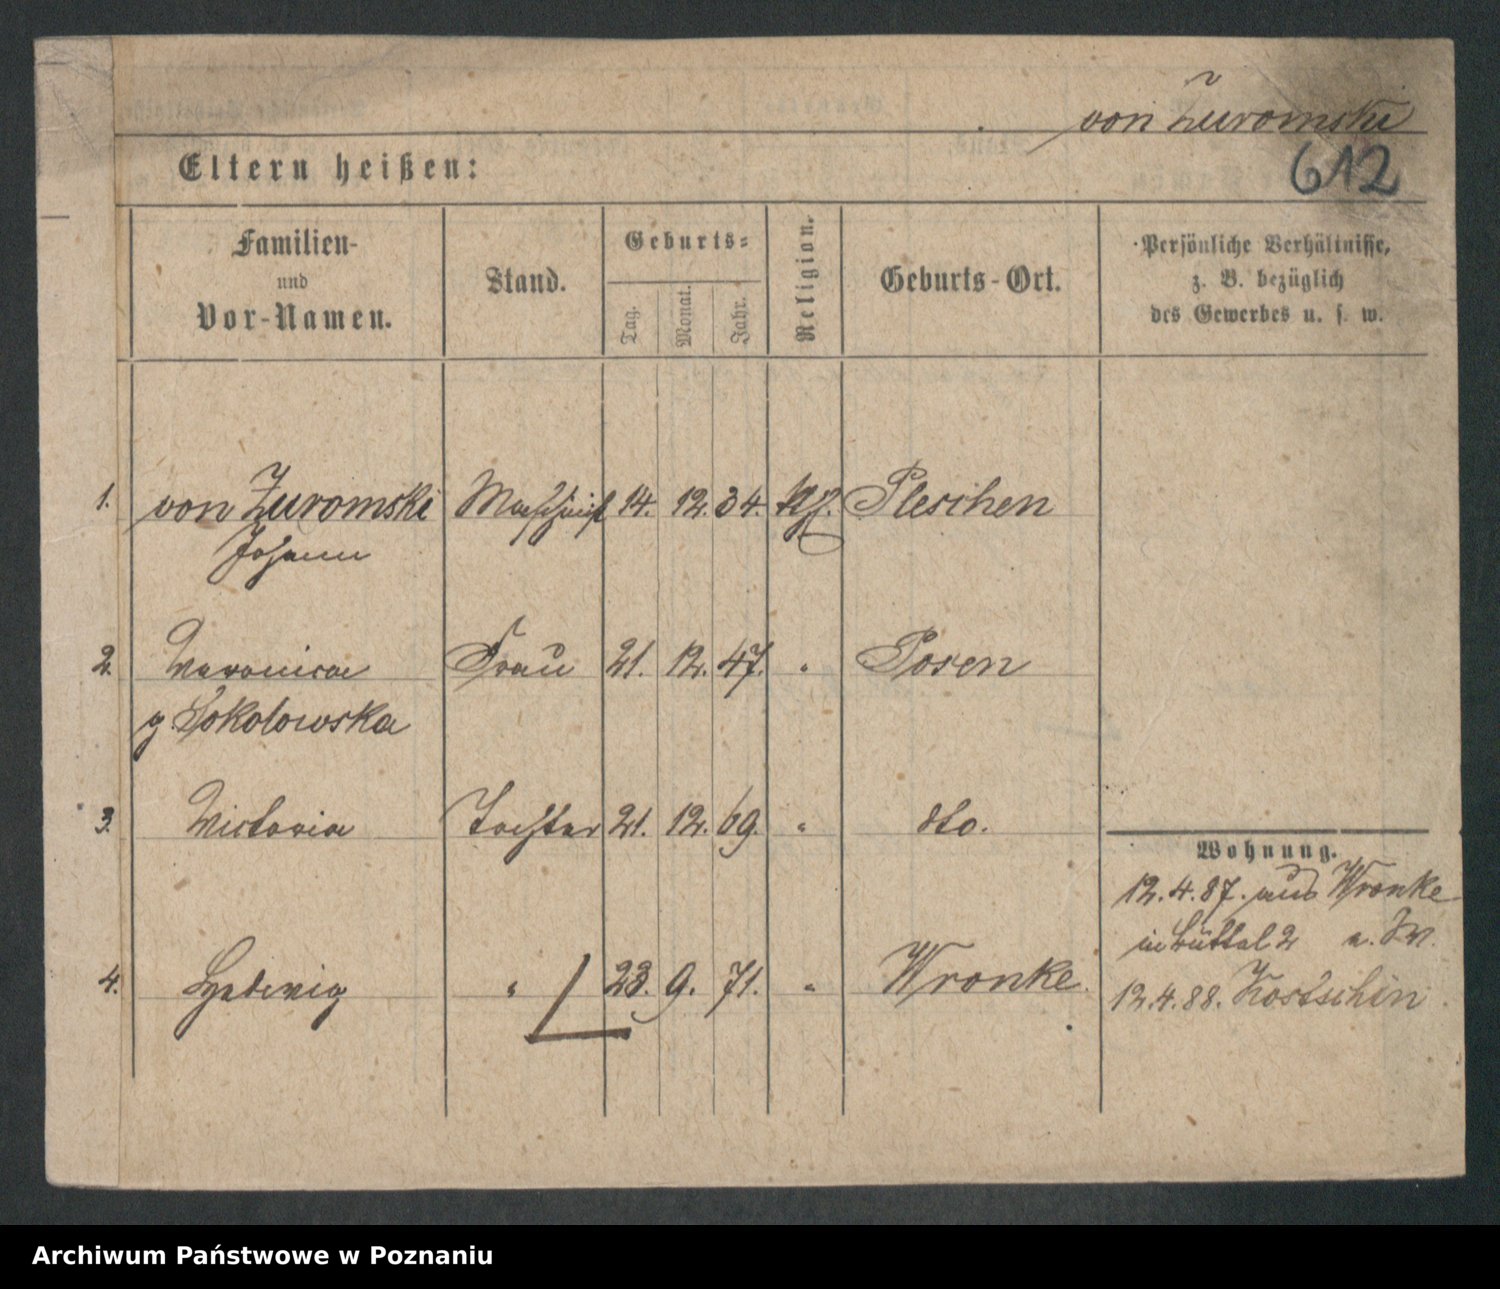 von Żuromski
612
Eltern heißen:
Familien-
und
Vor-Namen.
Stand.
Geburts-
Tag.
Monat.
Jahr.
Religion.
Geburts-Ort.
Persönliche Verhältnisse,
z. B. bezüglich
des Gewerbes u. s. w.
1. von Zuromski Maschinist 14. 12. 34. Pleschen
Johann
2. Veronica Frau 21. 12. 47. " Posen
g. Sokolowska
3. Victoria Tochter 21. 12. 69. " dto.
Wohnung.
12.4.87. aus Wronke
in Büttel 2
4. Hedwig " 23. 9. 71. " Wronke.
12.4.88. Kostschin.
Archiwum Państwowe w Poznaniu